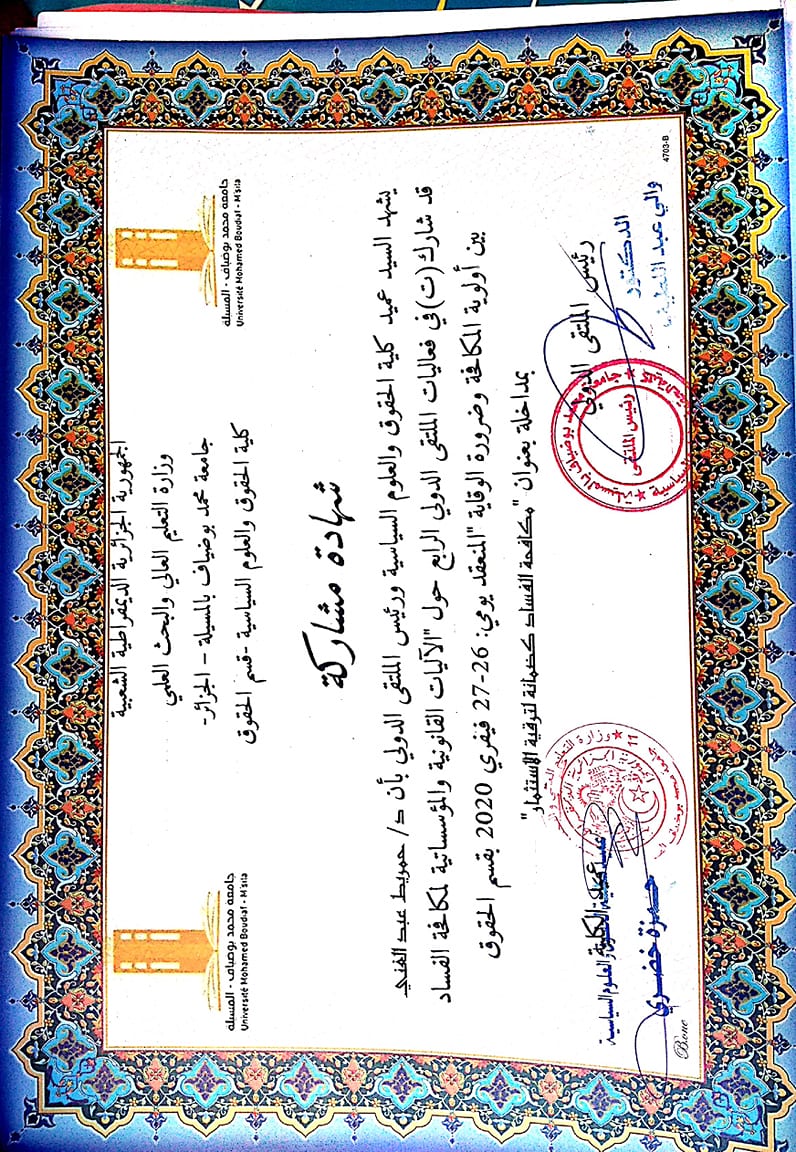 الجمهورية الجزائرية الديمقراطية الشعبية
وزارة التعليم العالي والبحث العلمي
جامعة محمد بوضياف بالمسيلة – الجزائر-
كلية الحقوق والعلوم السياسية -قسم الحقوق
جامعة محمد بوضياف - المسيلة
Université Mohamed Boudiaf - M'sila
جامعة محمد بوضياف - المسيلة
Université Mohamed Boudiaf - M'sila
شهادة مشاركة
يشهد السيد عميد كلية الحقوق والعلوم السياسية ورئيس الملتقى الدولي بأن د/ حمريط عبد الغني
قد شارك(ت) في فعاليات الملتقى الدولي الرابع حول "الآليات القانونية والمؤسساتية لمكافحة الفساد
بين أولوية المكافحة وضرورة الوقاية "المنعقد يومي: 26-27 فيفري 2020 بقسم الحقوق
بمداخلة بعنوان "مكافحة الفساد كضمانة لترقية الاستثمار"
رئيس الملتقى الدولي
الدكتور
والي عبد اللطيف
رئيس الملتقى
عميد كلية الحقوق والعلوم السياسية
حمزة خضري
11
Bone
4703-B